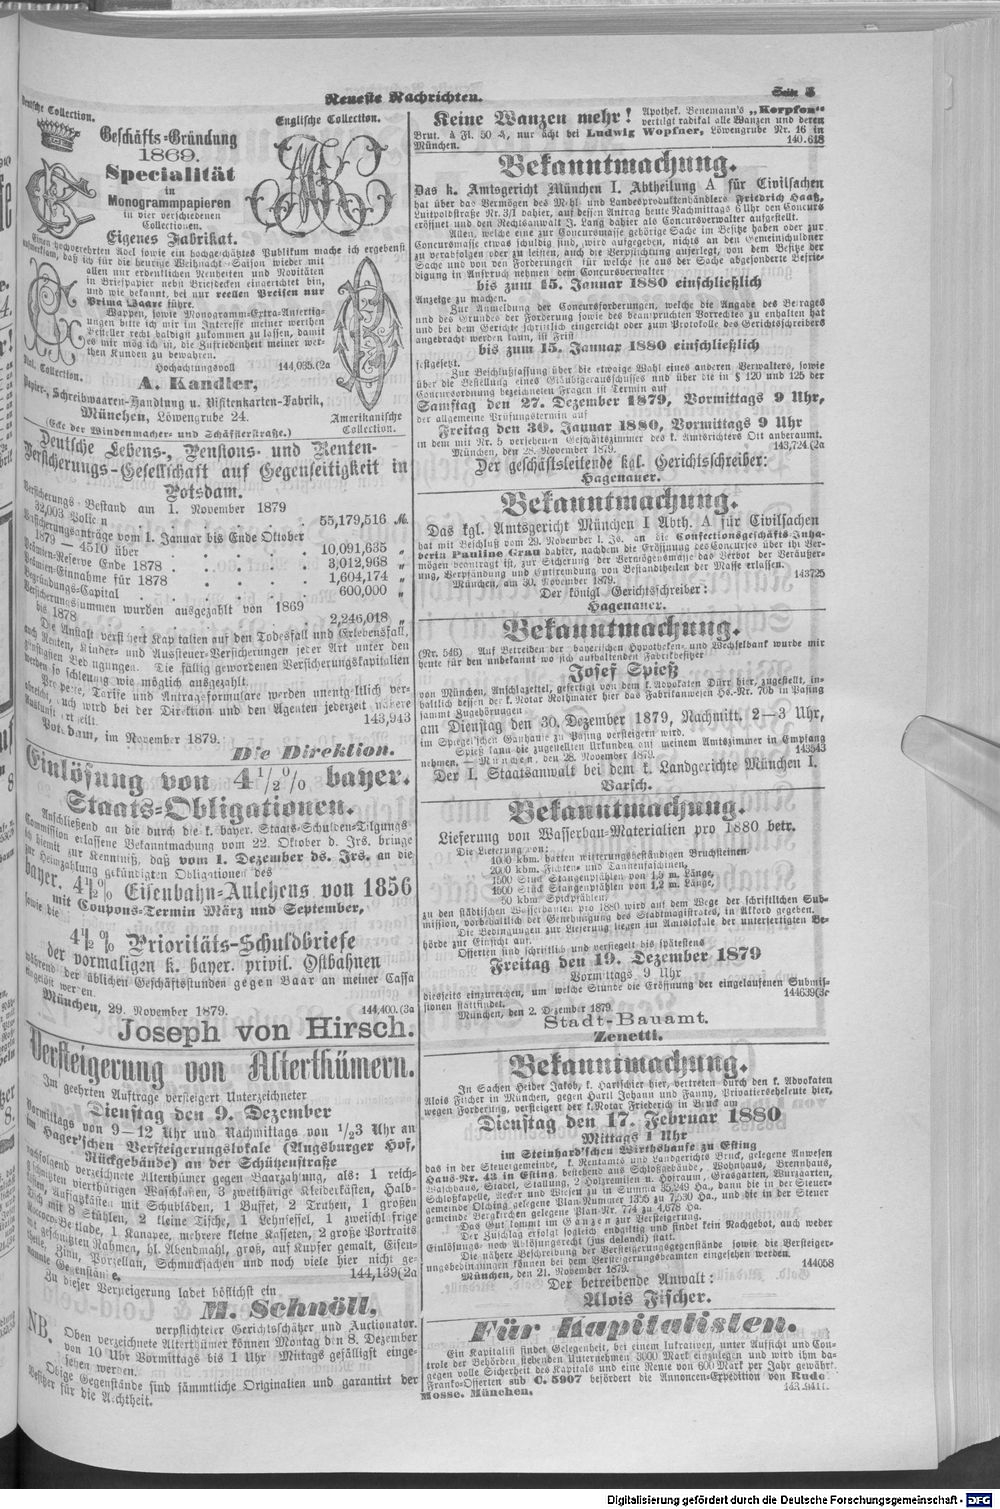 Neueste Nachrichten.
Seite 5
Deutsche Collection.
Englische Collection.
Geschäfts-Gründung
1869.
Specialität
in
Monogrammpapieren
in vier verschiedenen
Collectionen.
Eigenes Fabrikat.
Einen hochverehrten Adel sowie ein hochgeschätztes Publikum mache ich ergebenst
aufmerksam, daß ich für die heurige Weihnacht-Saison wieder mit
allen nur erdenklichen Neuheiten und Novitäten
in Briefpapier nebst Briefdecken eingerichtet bin,
und wie bekannt, bei nur reellen Preisen nur
Prima Waare führe.
Wappen, sowie Monogramm-Extra-Anfertig-
ungen bitte ich mir im Interesse meiner werthen
Besteller recht baldigst zukommen zu lassen, damit
es mir möglich ist, die Zufriedenheit meiner wer-
then Kunden zu bewahren.
Hochachtungsvoll 144,035.(2a
A. Kandler,
Papier-, Schreibwaaren-Handlung u. Visitenkarten-Fabrik,
München, Löwengrube 24.
(Ecke der Windenmacher- und Schäfflerstraße.)
Amerikanische
Collection.
Deutsche Lebens-, Pensions- und Renten-
Versicherungs-Gesellschaft auf Gegenseitigkeit in
Potsdam.
Versicherungs-Bestand am 1. November 1879
32,003 Policen . 55,179,516 M.
Versicherungsanträge vom 1. Januar bis Ende Oktober
1879 — 4510 über . . . . 10,091,635 „
Prämien-Reserve Ende 1878 . . . 3,012,968 „
Prämien-Einnahme für 1878 . . . 1,604,174 „
Begründungs-Capital . . . . 600,000 „
Versicherungssummen wurden ausgezahlt von 1869
bis 1878 . . . . 2,246,018 „
Die Anstalt versichert Kapitalien auf den Todesfall und Erlebensfall,
auch Renten, Kinder- und Aussteuer-Versicherungen jeder Art unter den
günstigsten Bedingungen. Die fällig gewordenen Versicherungskapitalien
werden so schleunig wie möglich ausgezahlt.
Prospecte, Tarife und Antragsformulare werden unentgeltlich ver-
abreicht, auch wird bei der Direktion und den Agenten jederzeit nähere
Auskunft ertheilt. 143,943
Potsdam, im November 1879.
Die Direktion.
Einlösung von 4 1/2 % bayer.
Staats-Obligationen.
Anschließend an die durch die k. bayer. Staats-Schulden-Tilgungs-
Commission erlassene Bekanntmachung vom 22. Oktober d. Jrs. bringe
ich hiemit zur Kenntniß, daß vom 1. Dezember ds. Jrs. an die
zur Heimzahlung gekündigten Obligationen des
bayer. 4 1/2 % Eisenbahn-Anlehens von 1856
mit Coupons-Termin März und September,
sowie die
4 1/2 % Prioritäts-Schuldbriefe
der vormaligen k. bayer. privil. Ostbahnen
während der üblichen Geschäftsstunden gegen Baar an meiner Cassa
eingelöst werden.
München, 29. November 1879. 144,400.(3a
Joseph von Hirsch.
Versteigerung von Alterthümern.
Im geehrten Auftrage versteigert Unterzeichneter
Dienstag den 9. Dezember
Vormittags von 9—12 Uhr und Nachmittags von 1/2 3 Uhr an
im Hager'schen Versteigerungslokale (Augsburger Hof,
Rückgebäude) an der Schützenstraße
nachfolgend verzeichnete Alterthümer gegen Baarzahlung, als: 1 reich-
geschnitzten vierthürigen Waschkasten, 3 zweithürige Kleiderkästen, Halb-
Aufsatzkästen mit Schubläden, 1 Buffet, 2 Truhen, 1 großen
mit 8 Stühlen, 2 kleine Tische, 1 Lehnsessel, 1 zweischläfrige
Rococo-Bettlade, 1 Kanapee, mehrere kleine Kassetten, 2 große Portraits
mit geschnitzten Rahmen, hl. Abendmahl, groß, auf Kupfer gemalt, Eisen-
theile, Zinn, Porzellan, Schmucksachen und noch viele hier nicht ge-
nannte Gegenstände. 144,139(2a
Zu dieser Versteigerung ladet höflichst ein
M. Schnöll,
verpflichteter Gerichtsschätzer und Auctionator.
NB. Oben verzeichnete Alterthümer können Montag den 8. Dezember
von 10 Uhr Vormittags bis 1 Uhr Mittags gefälligst einge-
sehen werden.
Obige Gegenstände sind sämmtliche Originalien und garantirt der
Besitzer für die Achtheit.
Keine Wanzen mehr! Apothek. Benemann's „Korpfon“
vertilgt radikal alle Wanzen und deren
Brut. à Fl. 50 ₰, nur ächt bei Ludwig Wopfner, Löwengrube Nr. 16 in
München. 140.618
Bekanntmachung.
Das k. Amtsgericht München I. Abtheilung A für Civilsachen
hat über das Vermögen des Mehl- und Landesproduktenhändlers Friedrich Haaß,
Luitpoldstraße Nr. 3/1 dahier, auf dessen Antrag heute Nachmittags 6 Uhr den Concurs
eröffnet und den Rechtsanwalt J. Lang dahier als Concursverwalter aufgestellt.
Allen, welche eine zur Concursmasse gehörige Sache im Besitze haben oder zur
Concursmasse etwas schuldig sind, wird aufgegeben, nichts an den Gemeinschuldner
zu verabfolgen oder zu leisten, auch die Verpflichtung auferlegt, von dem Besitze der
Sache und von den Forderungen für welche sie aus der Sache abgesonderte Befrie-
digung in Anspruch nehmen dem Concursverwalter
bis zum 15. Januar 1880 einschließlich
Anzeige zu machen.
Zur Anmeldung der Concursforderungen, welche die Angabe des Betrages
und des Grundes der Forderung sowie des beanspruchten Vorrechtes zu enthalten hat
und bei dem Gerichte schriftlich eingereicht oder zum Protokolle des Gerichtsschreibers
angebracht werden kann, ist Frist
bis zum 15. Januar 1880 einschließlich
festgesetzt.
Zur Beschlußfassung über die etwaige Wahl eines anderen Verwalters, sowie
über die Bestellung eines Gläubigerausschusses und über die in § 120 und 125 der
Concursordnung bezeichneten Fragen ist Termin auf
Samstag den 27. Dezember 1879, Vormittags 9 Uhr,
der allgemeine Prüfungstermin auf
Freitag den 30. Januar 1880, Vormittags 9 Uhr
in dem mit Nr. 5 versehenen Geschäftszimmer des k. Amtsrichters Ott anberaumt.
München, den 28. November 1879. 143,724.(2a
Der geschäftsleitende kgl. Gerichtsschreiber:
Hagenauer.
Bekanntmachung.
Das kgl. Amtsgericht München I Abth. A für Civilsachen
hat mit Beschluß vom 29. November l. Js. an die Confectionsgeschäfts-Inha-
berin Pauline Grau dahier, nachdem die Eröffnung des Concurses über ihr Ver-
mögen beantragt ist, zur Sicherung der Vermögensmasse das Verbot der Veräußer-
ung, Verpfändung und Entfremdung von Bestandtheilen der Masse erlassen.
München, am 30. November 1879. 143725
Der königl Gerichtsschreiber:
Hagenauer.
Bekanntmachung.
(Nr. 546) Auf Betreiben der bayerischen Hypotheken- und Wechselbank wurde mir
heute für den unbekannt wo sich aufhaltenden Fabrikbesitzer
Josef Spieß
von München, Anschlagzettel, gefertigt von dem k. Advokaten Dürr hier, zugestellt, in-
haltlich dessen der k. Notar Rothmaier hier das Fabrikanwesen Hs.-Nr. 70b in Pasing
sammt Zugehörungen
am Dienstag den 30. Dezember 1879, Nachmitt. 2—3 Uhr,
im Spiegel'schen Gasthause zu Pasing versteigern wird.
Spieß kann die zugestellten Urkunden auf meinem Amtszimmer in Empfang
nehmen. — München, den 28. November 1879. 143543
Der I. Staatsanwalt bei dem k. Landgerichte München I.
Barsch.
Bekanntmachung.
Lieferung von Wasserbau-Materialien pro 1880 betr.
Die Lieferung von:
4000 kbm. harten witterungsbeständigen Bruchsteinen
2000 kbm. Fichten- und Tannenfaschinen,
1500 Stück Stangenpfählen von 1,5 m. Länge,
1600 Stück Stangenpfählen von 1,2 m. Länge,
50 kbm Spickpfählen,
zu den städtischen Wasserbauten pro 1880 wird auf dem Wege der schriftlichen Sub-
mission, vorbehaltlich der Genehmigung des Stadtmagistrates, in Akkord gegeben.
Die Bedingungen zur Lieferung liegen im Amtslokale der unterfertigten Be-
hörde zur Einsicht auf.
Offerten sind schriftlich und versiegelt bis spätestens
Freitag den 19. Dezember 1879
Vormittags 9 Uhr
dieseits einzureichen, um welche Stunde die Eröffnung der eingelaufenen Submis-
sionen stattfindet. 144639(3c
München, den 2. Dezember 1879.
Stadt-Bauamt.
Zenetti.
Bekanntmachung.
In Sachen Heider Jakob, k. Hartschier hier, vertreten durch den k. Advokaten
Alois Fischer in München, gegen Hartl Johann und Fanny, Privatiersehe­leute hier,
wegen Forderung, versteigert der k. Notar Friederich in Bruck am
Dienstag den 17. Februar 1880
Mittags 1 Uhr
im Steinhard'schen Wirthshause zu Esting
das in der Steuergemeinde, k. Rentamts und Landgerichts Bruck, gelegene Anwesen
Haus-Nr. 43 in Esting, bestehend aus Schloßgebäude, Wohnhaus, Brennhaus,
Waschhaus, Stadel, Stallung, 2 Holzremisen u. Hofraum, Grasgarten, Wurzgarten,
Schloßkapelle, Aecker und Wiesen zu in Summa 35,249 Ha., dann die in der Steuer-
gemeinde Olching gelegene Plan Nummer 1395 zu 7,530 Ha., und die in der Steuer
gemeinde Bergkirchen gelegene Plan Nr. 774 zu 4,678 Ha.
Das Gut kommt im Ganzen zur Versteigerung.
Der Zuschlag erfolgt sogleich endgiltig und findet kein Nachgebot, auch weder
Einlösungs- noch Ablösungsrecht (jus delendi) statt.
Die nähere Beschreibung der Versteigerungsgegenstände sowie die Versteiger-
ungsbedingungen können bei dem Versteigerungsbeamten eingesehen werden.
München, den 21. November 1879. 144058
Der betreibende Anwalt:
Alois Fischer.
Für Kapitalisten.
Ein Kapitalist findet Gelegenheit, bei einem lukrativen, unter Aufsicht und Con-
trole der Behörden stehenden Unternehmen 3000 Mark einzulegen und wird ihm da-
gegen volle Sicherheit des Kapitals und eine Rente von 600 Mark per Jahr gewährt.
Franko-Offerten sub C. 5907 befördert die Annoncen-Expedition von Rudolf
Mosse, München. 143.9411.
Digitalisierung gefördert durch die Deutsche Forschungsgemeinschaft - DFG